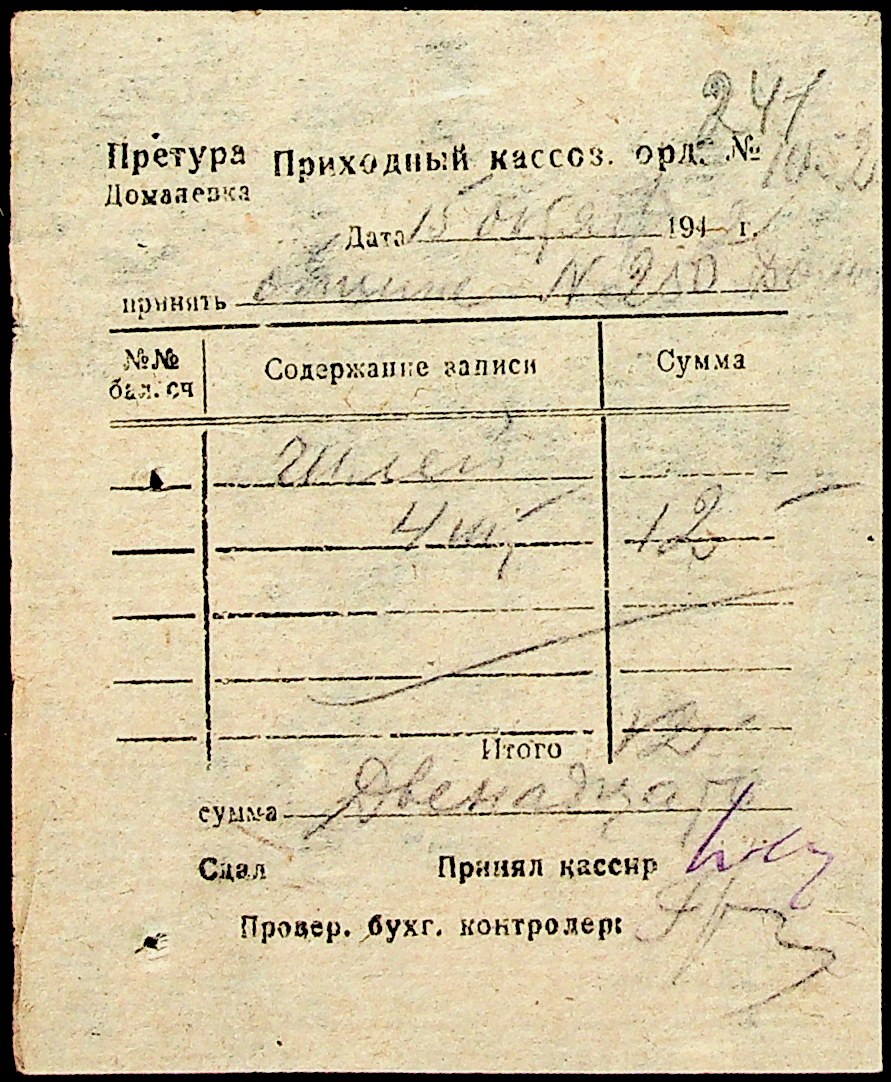 241
Претура Приходный кассов. орд. №
Домалевка
1052
Дата 15 194 г.
принять № 210
№№ бал. сч Содержание записи Сумма
4 шт 12
Итого 12
сумма Двенадцать
Сдал Принял кассир
Провер. бухг. контролер: